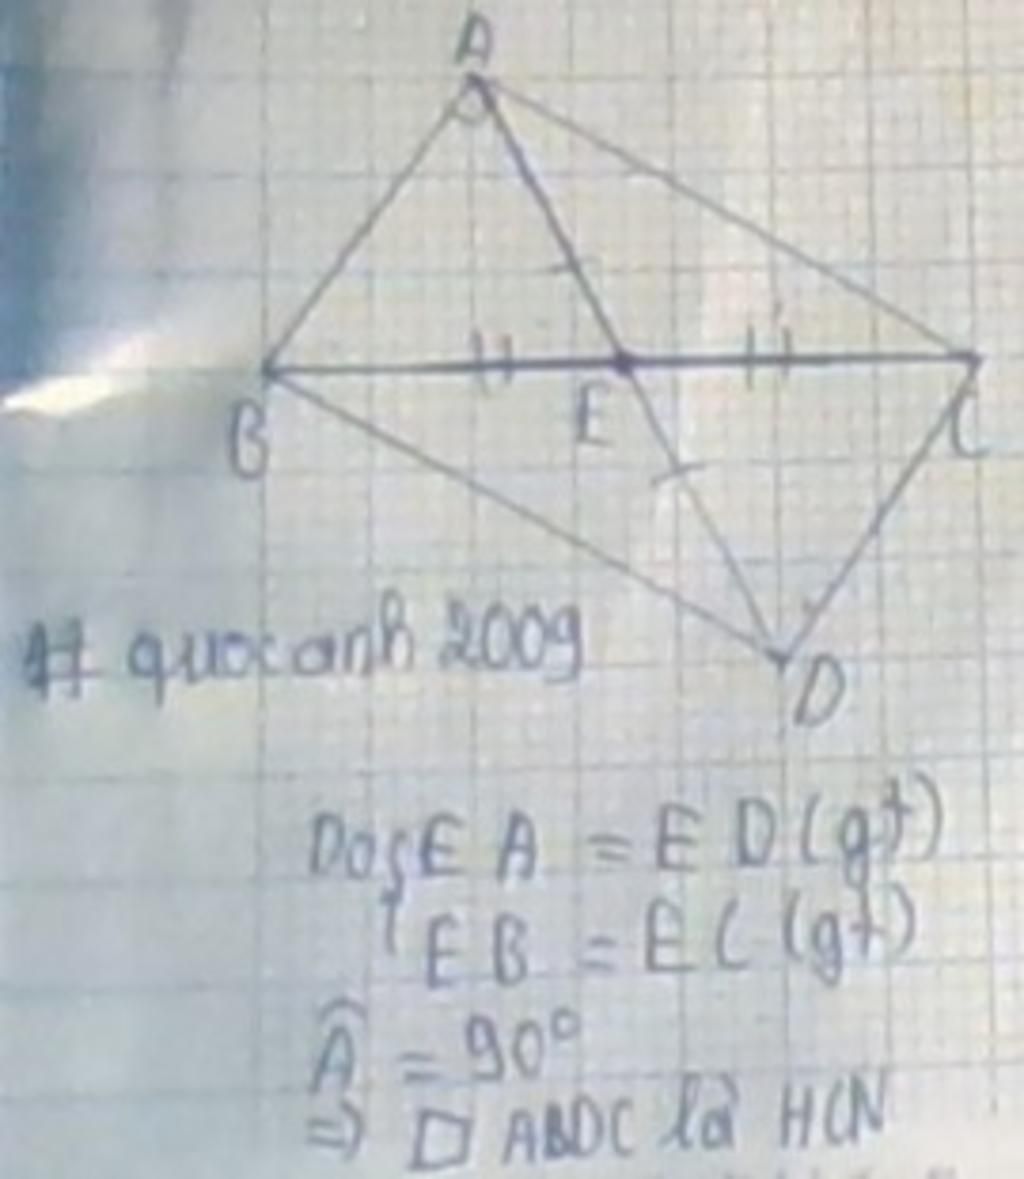 A
B
E
C
D
# quocanh 2009
Do { EA = ED (gt)
EB = EC (gt)
Â = 90°
=> □ ABDC là HCN